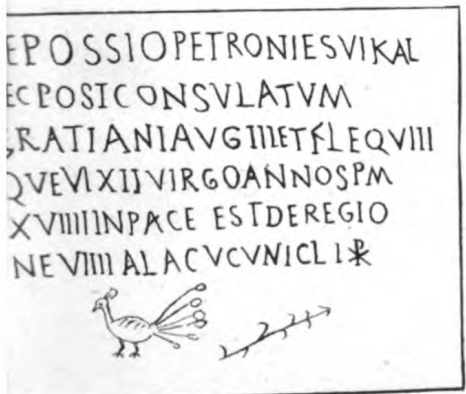 EPOSSIOPETRONIESVIKAL
ECPOSTCONSVLATVM
GRATIANIAVGIIIETFLEQVIIII
QVEVIXITVIRGOANNOSPM
XVIIIIINPACE ESTDEREGIO
NEVIIII ALACVCVNICLI☧